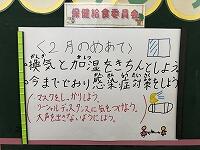 保健給食委員会
<2月のめあて>
換気と加湿をきちんとしよう
今までどおり感染症対策をしよう
マスクをしっかりしよう。
ソーシャルディスタンスに気をつけよう。
大声を出さないようにしよう。